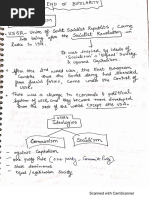 END OF BIPOLARITY
• USSR - Union of Soviet Socialist Republics, came
into being after the Socialist Revolution in
Russia in 1917.
It was inspired by ideals of
Socialism & opposed
Capitalism
• After the 2nd world war, the east European
Countries that the Soviet army had liberated
from fascist forces, came under the control of
USSR.
• There was a change in economic & political
system of USSR, and they became more developed
than the rest of the world except the USA.
USSR's
Ideologies
Communism
Socialism
→ against Capitalism
→ one party Rule (one party, Communist Party)
→ State dominance
→ Equal/egalitarian society
Scanned with CamScanner